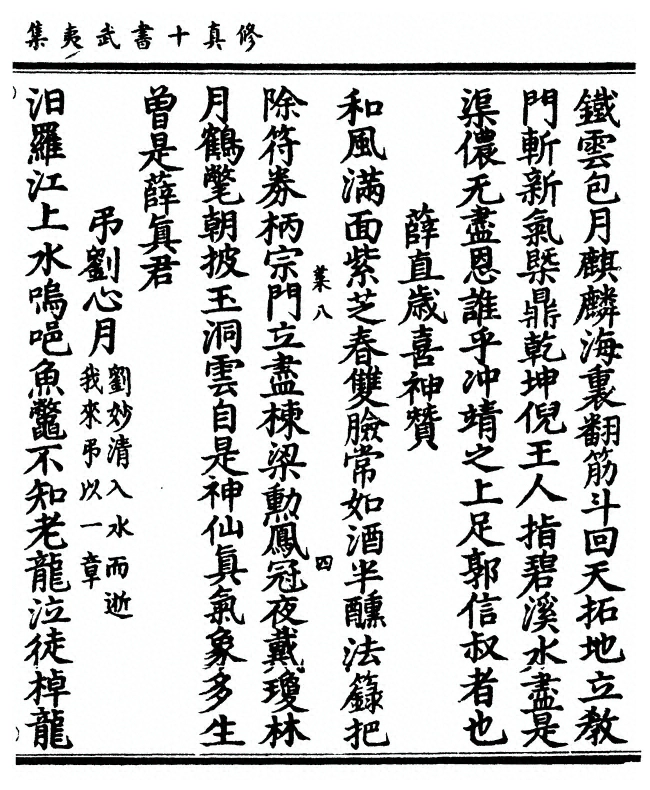 修真十書武夷集
鐵雲包月麒麟海裏翻筋斗回天拓地立教
門斬新氣槩鼎乾坤倪王人指碧溪水盡是
渠儂无盡恩誰乎冲靖之上足郭信叔者也
薛直歲喜神贊
和風滿面紫芝春雙臉常如酒半醺法籙把
菓八
四
除符券柄宗門立盡棟梁勳鳳冠夜戴瓊林
月鶴氅朝披玉洞雲自是神仙真氣象多生
曽是薛真君
弔劉心月
劉妙清入水而逝
我來弔以一章
汨羅江上水嗚唈魚鼈不知老龍泣徒棹龍